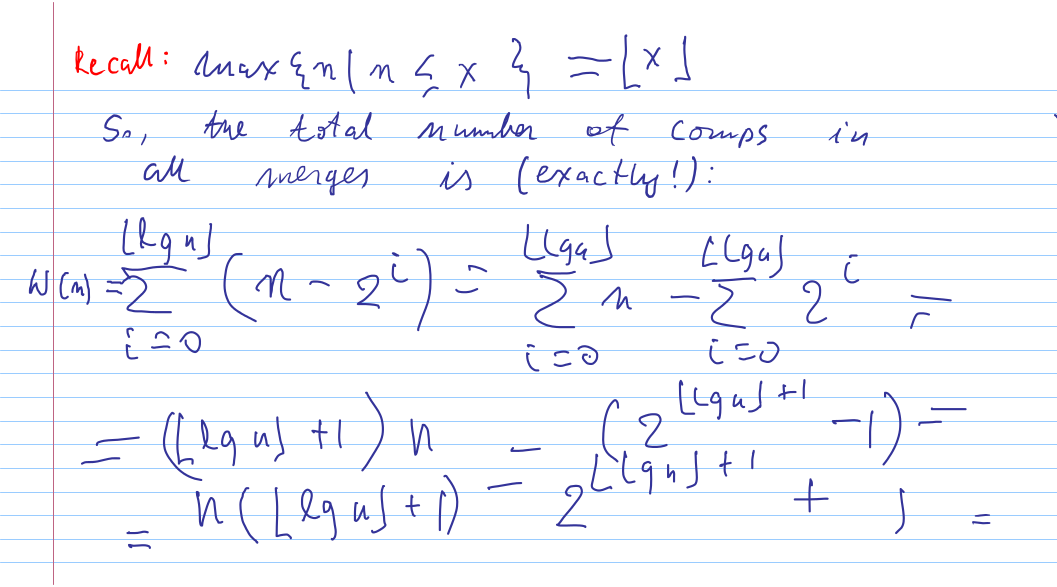 Recall: max{n | n ≤ x } = ⌊x⌋
So, the total number of comps in
all merges is (exactly!):
W(n) = ∑_{i=0}^{⌊lg n⌋} (n - 2^i) = ∑_{i=0}^{⌊lg n⌋} n - ∑_{i=0}^{⌊lg n⌋} 2^i =
= (⌊lg n⌋ + 1) n - (2^{⌊lg n⌋ + 1} - 1) =
= n(⌊lg n⌋ + 1) - 2^{⌊lg n⌋ + 1} + 1 =